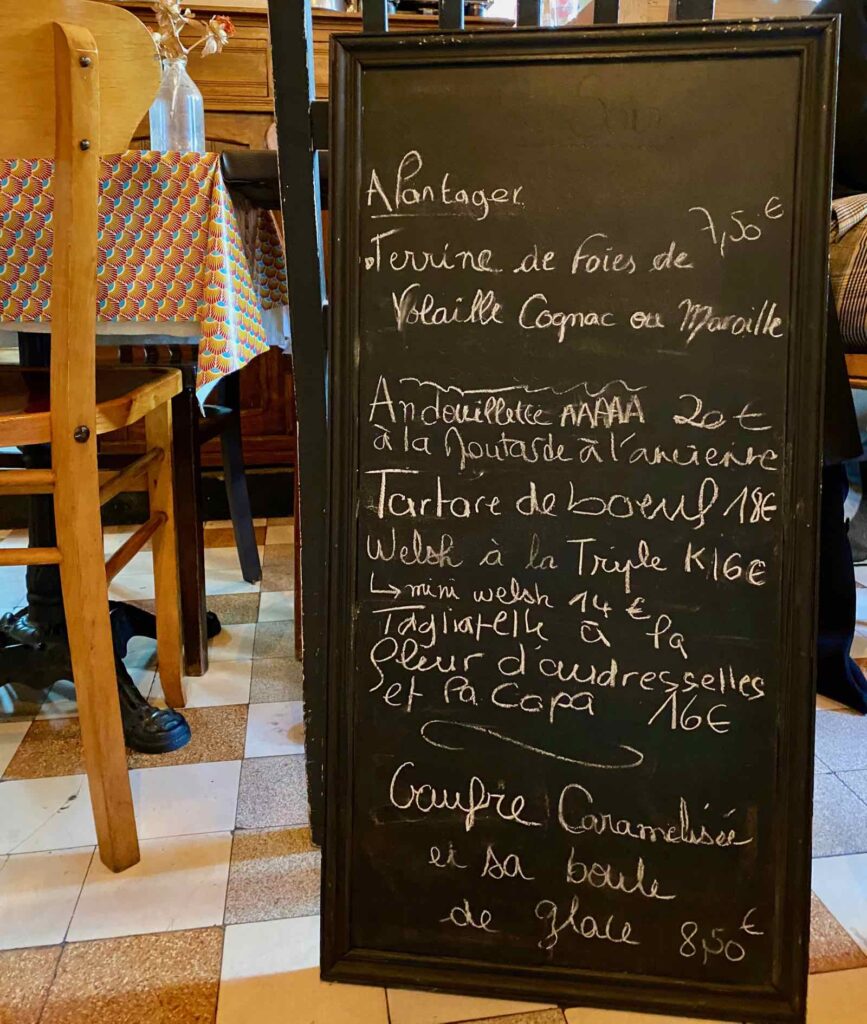 A Partager
Terrine de Foies de 7,50€
Volaille Cognac ou Maroille
Andouillette AAAAA 20€
à la Moutarde à l'ancienne
Tartare de boeuf 18€
Welsh à la Triple K 16€
↳ mini welsh 14€
Tagliatelle à la
fleur d'audresselles
et la Copa 16€
Gaufre Caramelisée
et sa boule
de glace 8,50€